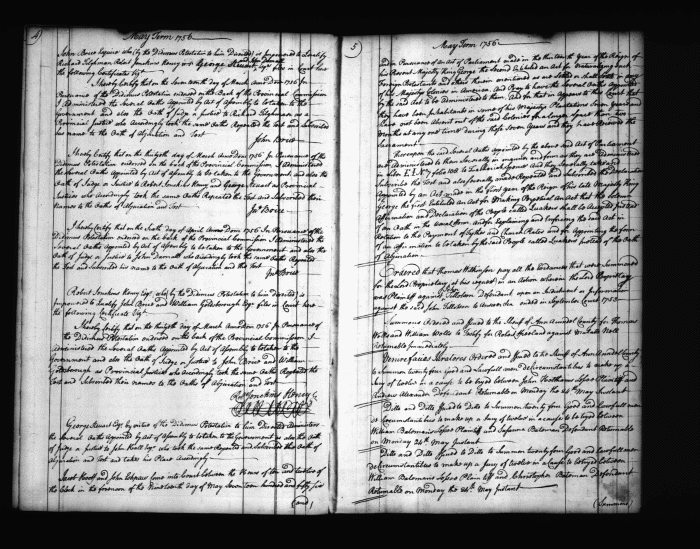 4
May Term 1756
John Brice Esquire who (by the Didimus Potestatem to him Directed) is impowered to Qualify
Richard Tilghman Robert Jenkins Henry and George Steuart Esqrs files in Court here
the following Certificates Vizt
I hereby Certify that on the Day of March Anno Dom 1756 in
Pursuance of the Didimus Potestatem endorsed on the back of the Provincial Commission
I Administered the several Oaths Appointed by Act of Assembly to be taken to the
Government and also the Oath of Judge or Justice to Richard Tilghman as a
Provincial Justice who accordingly took the same Oaths Repeated the Test and Subscribed
his name to the Oath of Abjuration and Test
John Brice
I hereby Certify that on the day of March Anno Dom 1756 in Pursuance of the
Didimus Potestatem endorsed on the back of the Provincial Commission I Administered
the several Oaths Appointed by Act of Assembly to be taken to the Government and also the
Oath of Judge or Justice to Robert Jenkins Henry and George Steuart as Provincial
Justices who accordingly took the same Oaths Repeated the Test and Subscribed their
Names to the Oaths of Abjuration and Test
Jno Brice
I hereby Certify that on the Sixth day of April Anno Dom 1756 In Pursuance of the
Didimus Potestatem endorsed on the back of the Provincial Commission I Administered the
several Oaths Appointed by Act of Assembly to be taken to the Government and also the
Oath of Judge or Justice to John who accordingly took the same Oaths Repeated
the Test and Subscribed his name to the Oath of Abjuration and the Test
Jno Brice
Robert Jenkins Henry Esqr who (by the Didimus Potestatem to him directed) is
impowered to Qualify John Brice and William Goldsborough Esqrs files in Court here
the following Certificate Vizt
I hereby Certify that on the day of March Anno Dom 1756 in Pursuance of
the Didimus Potestatem endorsed on the back of the Provincial Commission I
Administered the several Oaths Appointed by Act of Assembly to be taken to the
Government and also the Oath of Judge or Justice to John Brice and William
Goldsborough as Provincial Justices who accordingly took the same Oaths Repeated the
Test and Subscribed their names to the Oaths of Abjuration and Test
Robt Jenkins Henry
George Steuart Esqr by virtue of the Didimus Potestatem to him Directed administers
the several Oaths Appointed by Act of Assembly to be taken to the Government as also the Oath
of Judge or Justice to John Esqr who took the same Repeated and Subscribed the Oath of
Abjuration and Test and takes his Place Accordingly
Jacob and John come into Court between the Hours of ten and twelve of
the Clock in the forenoon of the Nineteenth day of May Seventeen hundred and fifty six
(and)
5
May Term 1756
in Pursuance of an Act of Parliament made in the thirteenth year of the Reign of
his Present Majesty King George the Second Entituled an Act for Naturalizing such
Foreign Protestants and others therein mentioned as are settled or shall settle in any
of his Majestys Colonies in America and Pray to have the Several Oaths appointed
by the said Act to be administered to them And for that it Appears to the Court that
they have been Inhabitants in some of his Majestys Plantations Seven years and
have not been absent out of the said Colonies for a longer space than two
Months at any one time during those Seven years and they have Received the
Sacrament
Thereupon the said several Oaths appointed by the above said Act of Parliament
are Administered to them
Subscribe the Test and also severally Repeated and Subscribed the Declaration
appointed by an Act made in the First year of the Reign of his late Majesty King
George the First Entituled an Act for Making Perpetual an Act that the solemn
Affirmation and Declaration of the People called Quakers shall be Accepted instead
of an Oath in the usual Form and for Explaining and Enforcing the said Act in
Relation to the Payment of Tythes and Church Rates and for Appointing the form
of an Affirmation to be taken by the said People called Quakers instead of the Oath
of Abjuration
Ordered that Thomas Wilkinson pay all the Evidences that were Summoned
for the Lord Proprietary (at his request) in an Action wherein the Lord Proprietary
was Plaintiff against Tillotson Defendant upon an Indictment or Information
against the said John Tillotson to Answer he ended in September Court 1753
Summons Ordered and Issued to the Sheriff of Ann Arundel County for Thomas
Wells and William Wells to Testify for Robert against Wells
Returnable Immediately
Venire facias Juratores Ordered and Issued to the Sheriff of Ann Arundel County
to Summon twenty four Good and Lawfull men de Circumstantibus to make up a
Jury of twelve in a cause to be tryed between John Lessee Plaintiff and
Alexander Defendant Returnable on Monday the 24th May Instant
Ditto and Ditto Issued to Ditto to Summon twenty four Good and Lawfull men
de Circumstantibus to make up a Jury of twelve in a cause to be tryed between
William Batemans Lessee Plaintiff and Bateman Defendant Returnable
on Monday 24th May Instant
Ditto and Ditto Issued to Ditto to Summon twenty four Good and Lawfull men
de Circumstantibus to make up a Jury of twelve in a Cause to be tryed between
William Batemans Lessee Plaintiff and Christopher Bateman Defendant
Returnable on Monday the 24th May Instant
(Summons)